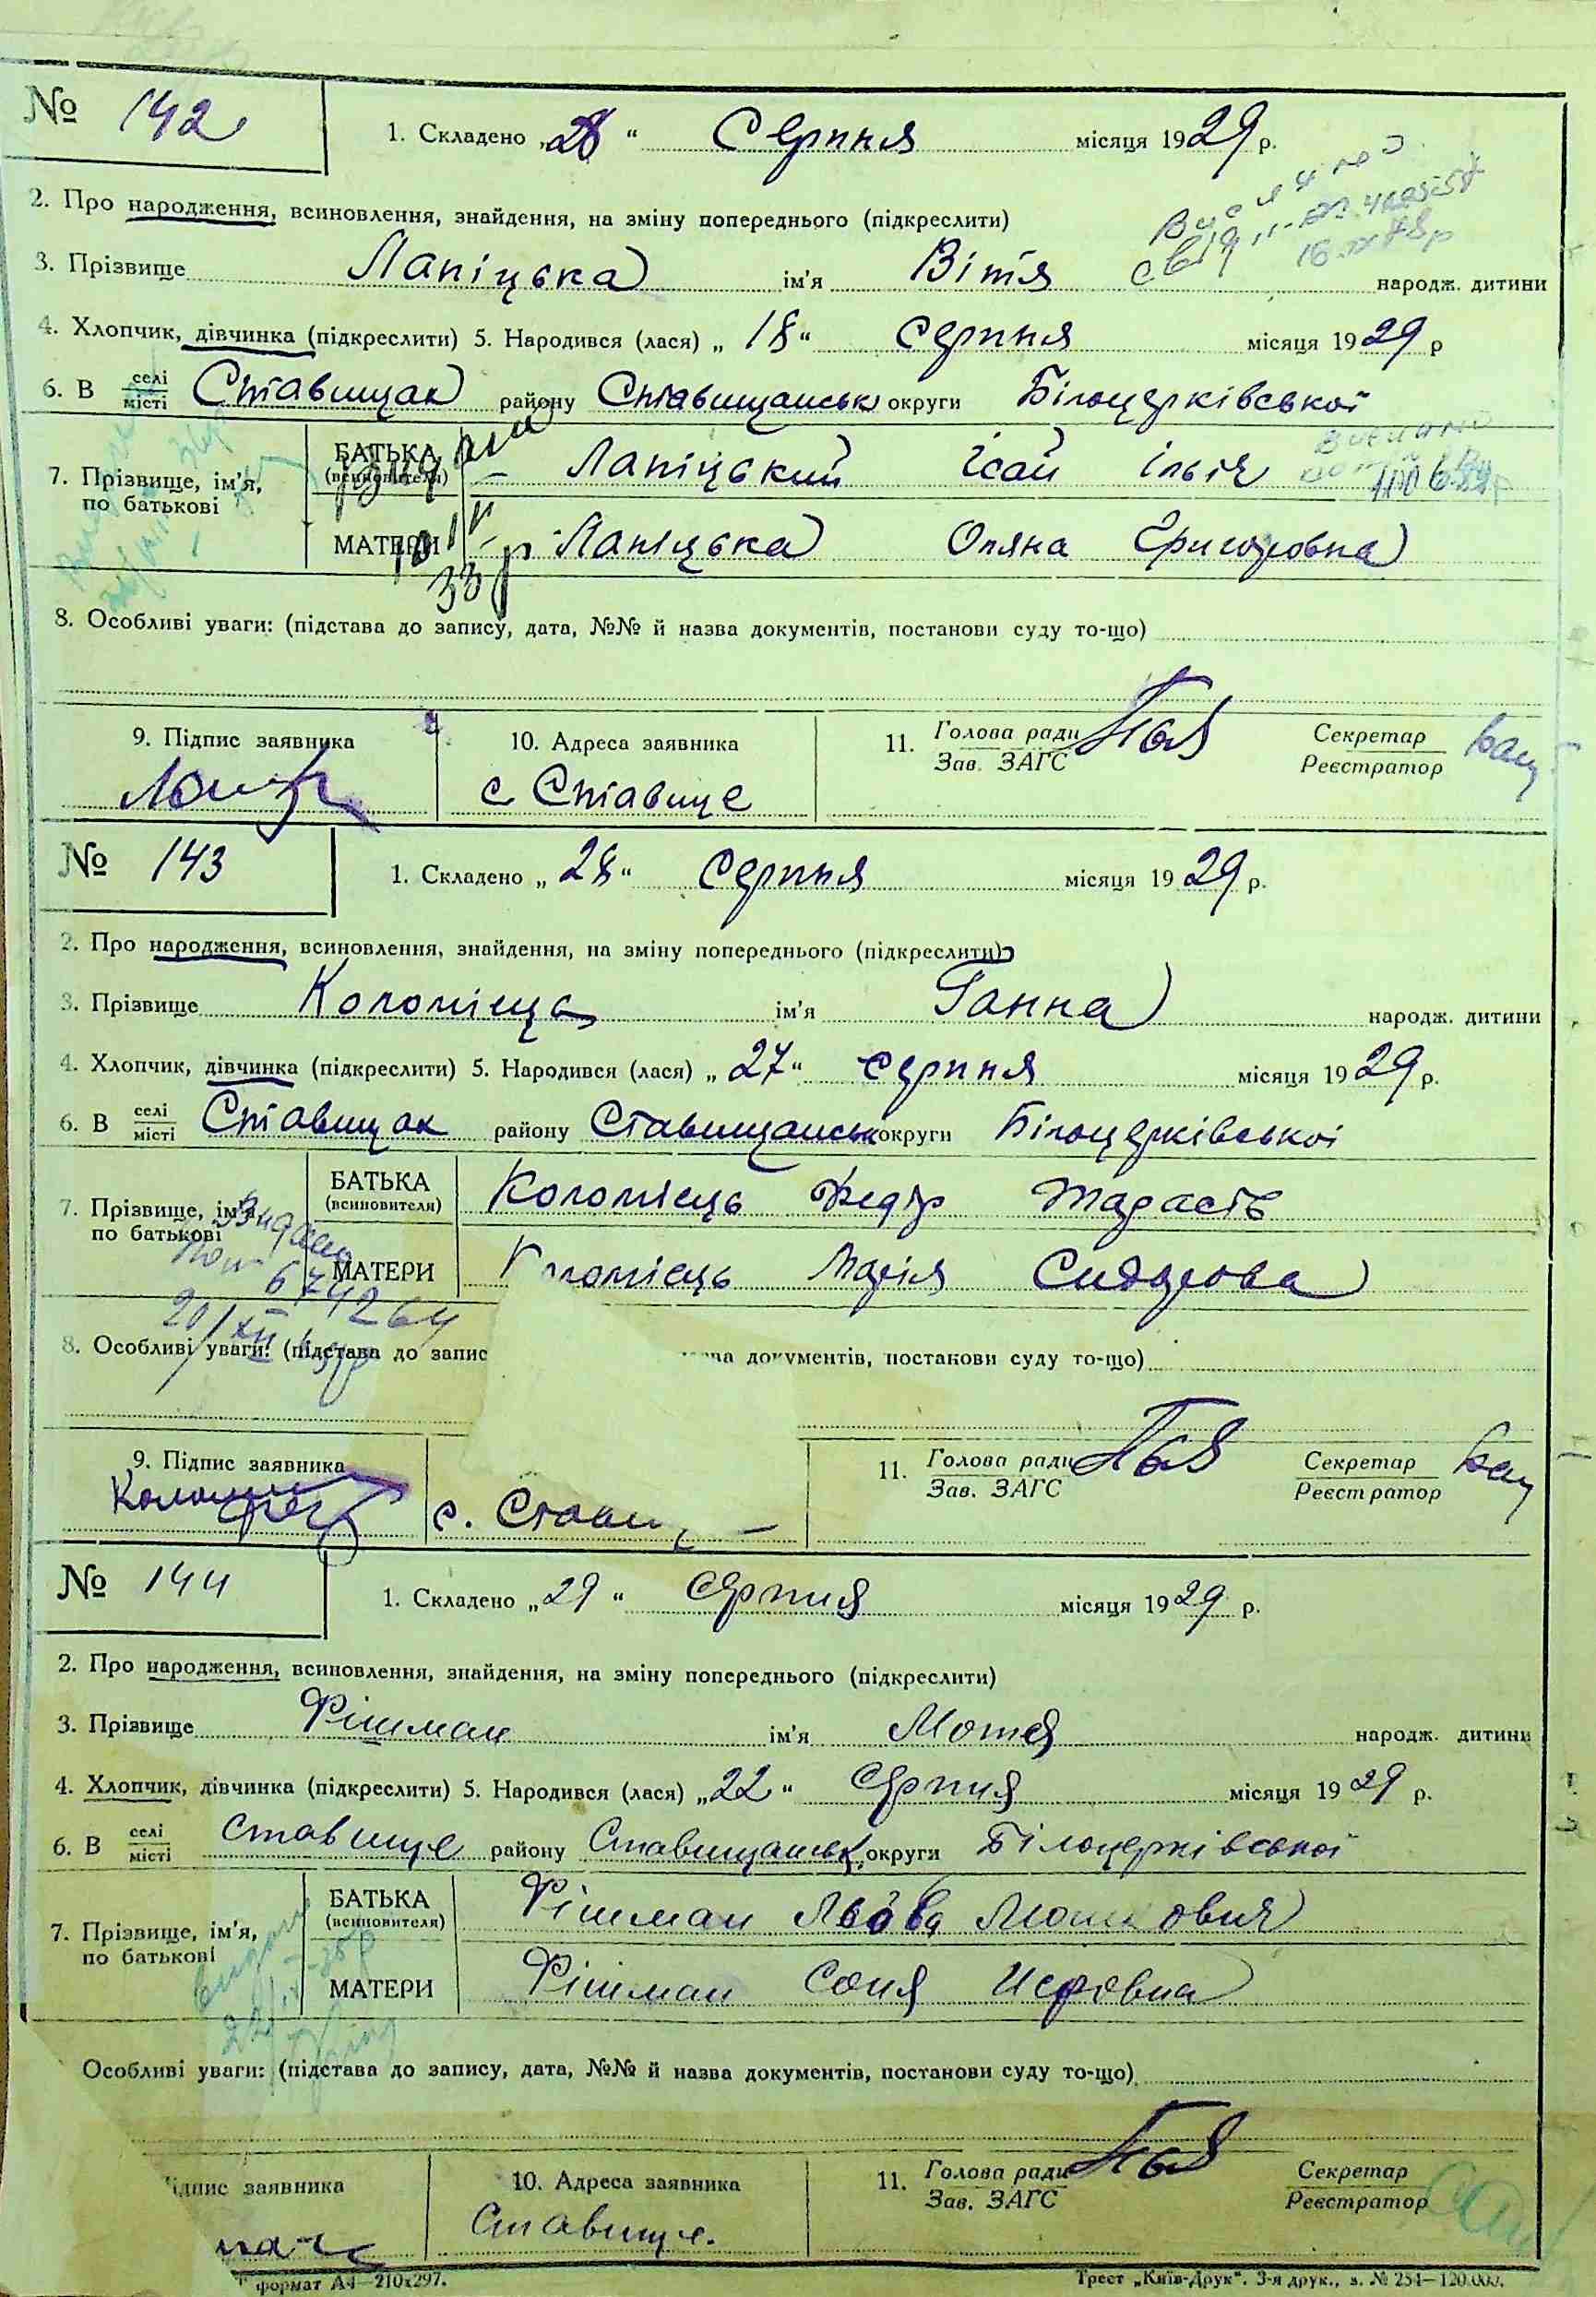 № 142
1. Складено „28“ Серпня місяця 1929 р.
2. Про народження, всиновлення, знайдення, на зміну попереднього (підкреслити)
3. Прізвище Лапіцька ім'я Вітя народж. дитини
4. Хлопчик, дівчинка (підкреслити) 5. Народився (лася) „18“ серпня місяця 1929 р
6. В селі місті Ставищах району Ставищанськ округи Білоцерківської
7. Прізвище, ім'я, по батькові
БАТЬКА (всиновителя) Лапіцький Ісай Ілліч
МАТЕРИ Лапіцька Оляна Григоровна
8. Особливі уваги: (підстава до запису, дата, №№ й назва документів, постанови суду то-що)
9. Підпис заявника 10. Адреса заявника 11. Голова ради Зав. ЗАГС Секретар Реєстратор
с Ставище
№ 143
1. Складено „28“ серпня місяця 1929 р.
2. Про народження, всиновлення, знайдення, на зміну попереднього (підкреслити)
3. Прізвище Коломієць ім'я Ганна народж. дитини
4. Хлопчик, дівчинка (підкреслити) 5. Народився (лася) „27“ серпня місяця 1929 р.
6. В селі місті Ставищах району Ставищанськ округи Білоцерківської
7. Прізвище, ім'я, по батькові
БАТЬКА (всиновителя) Коломієць Федір Тарасів
МАТЕРИ Коломієць Марія Сидорова
8. Особливі уваги: (підстава до запис документів, постанови суду то-що)
9. Підпис заявника 11. Голова ради Зав. ЗАГС Секретар Реєстратор
с. Стави
№ 144
1. Складено „29“ Серпня місяця 1929 р.
2. Про народження, всиновлення, знайдення, на зміну попереднього (підкреслити)
3. Прізвище Фішман ім'я Мотя народж. дитини
4. Хлопчик, дівчинка (підкреслити) 5. Народився (лася) „22“ Серпня місяця 1929 р.
6. В селі місті Ставище району Ставищанськ округи Білоцерківської
7. Прізвище, ім'я, по батькові
БАТЬКА (всиновителя) Фішман
МАТЕРИ Фішман Соня
Особливі уваги: (підстава до запису, дата, №№ й назва документів, постанови суду то-що)
ідпис заявника 10. Адреса заявника 11. Голова ради Зав. ЗАГС Секретар Реєстратор
Ставище.
формат А4—210х297.
Трест „Київ-Друк“. 3-я друк., з. № 254—120.000.